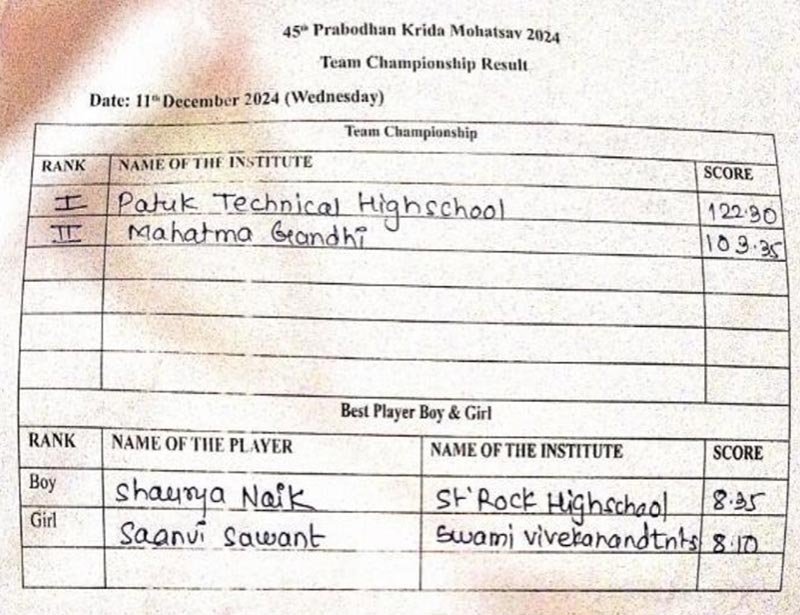 45th Prabodhan Krida Mohatsav 2024
Team Championship Result
Date: 11th December 2024 (Wednesday)
Team Championship
RANK NAME OF THE INSTITUTE SCORE
I Patuk Technical Highschool 122.30
II Mahatma Gandhi 103.35
Best Player Boy & Girl
RANK NAME OF THE PLAYER NAME OF THE INSTITUTE SCORE
Boy Shaurya Naik St' Rock Highschool 8.35
Girl Saanvi Sawant Swami vivekanandtnts 8.10